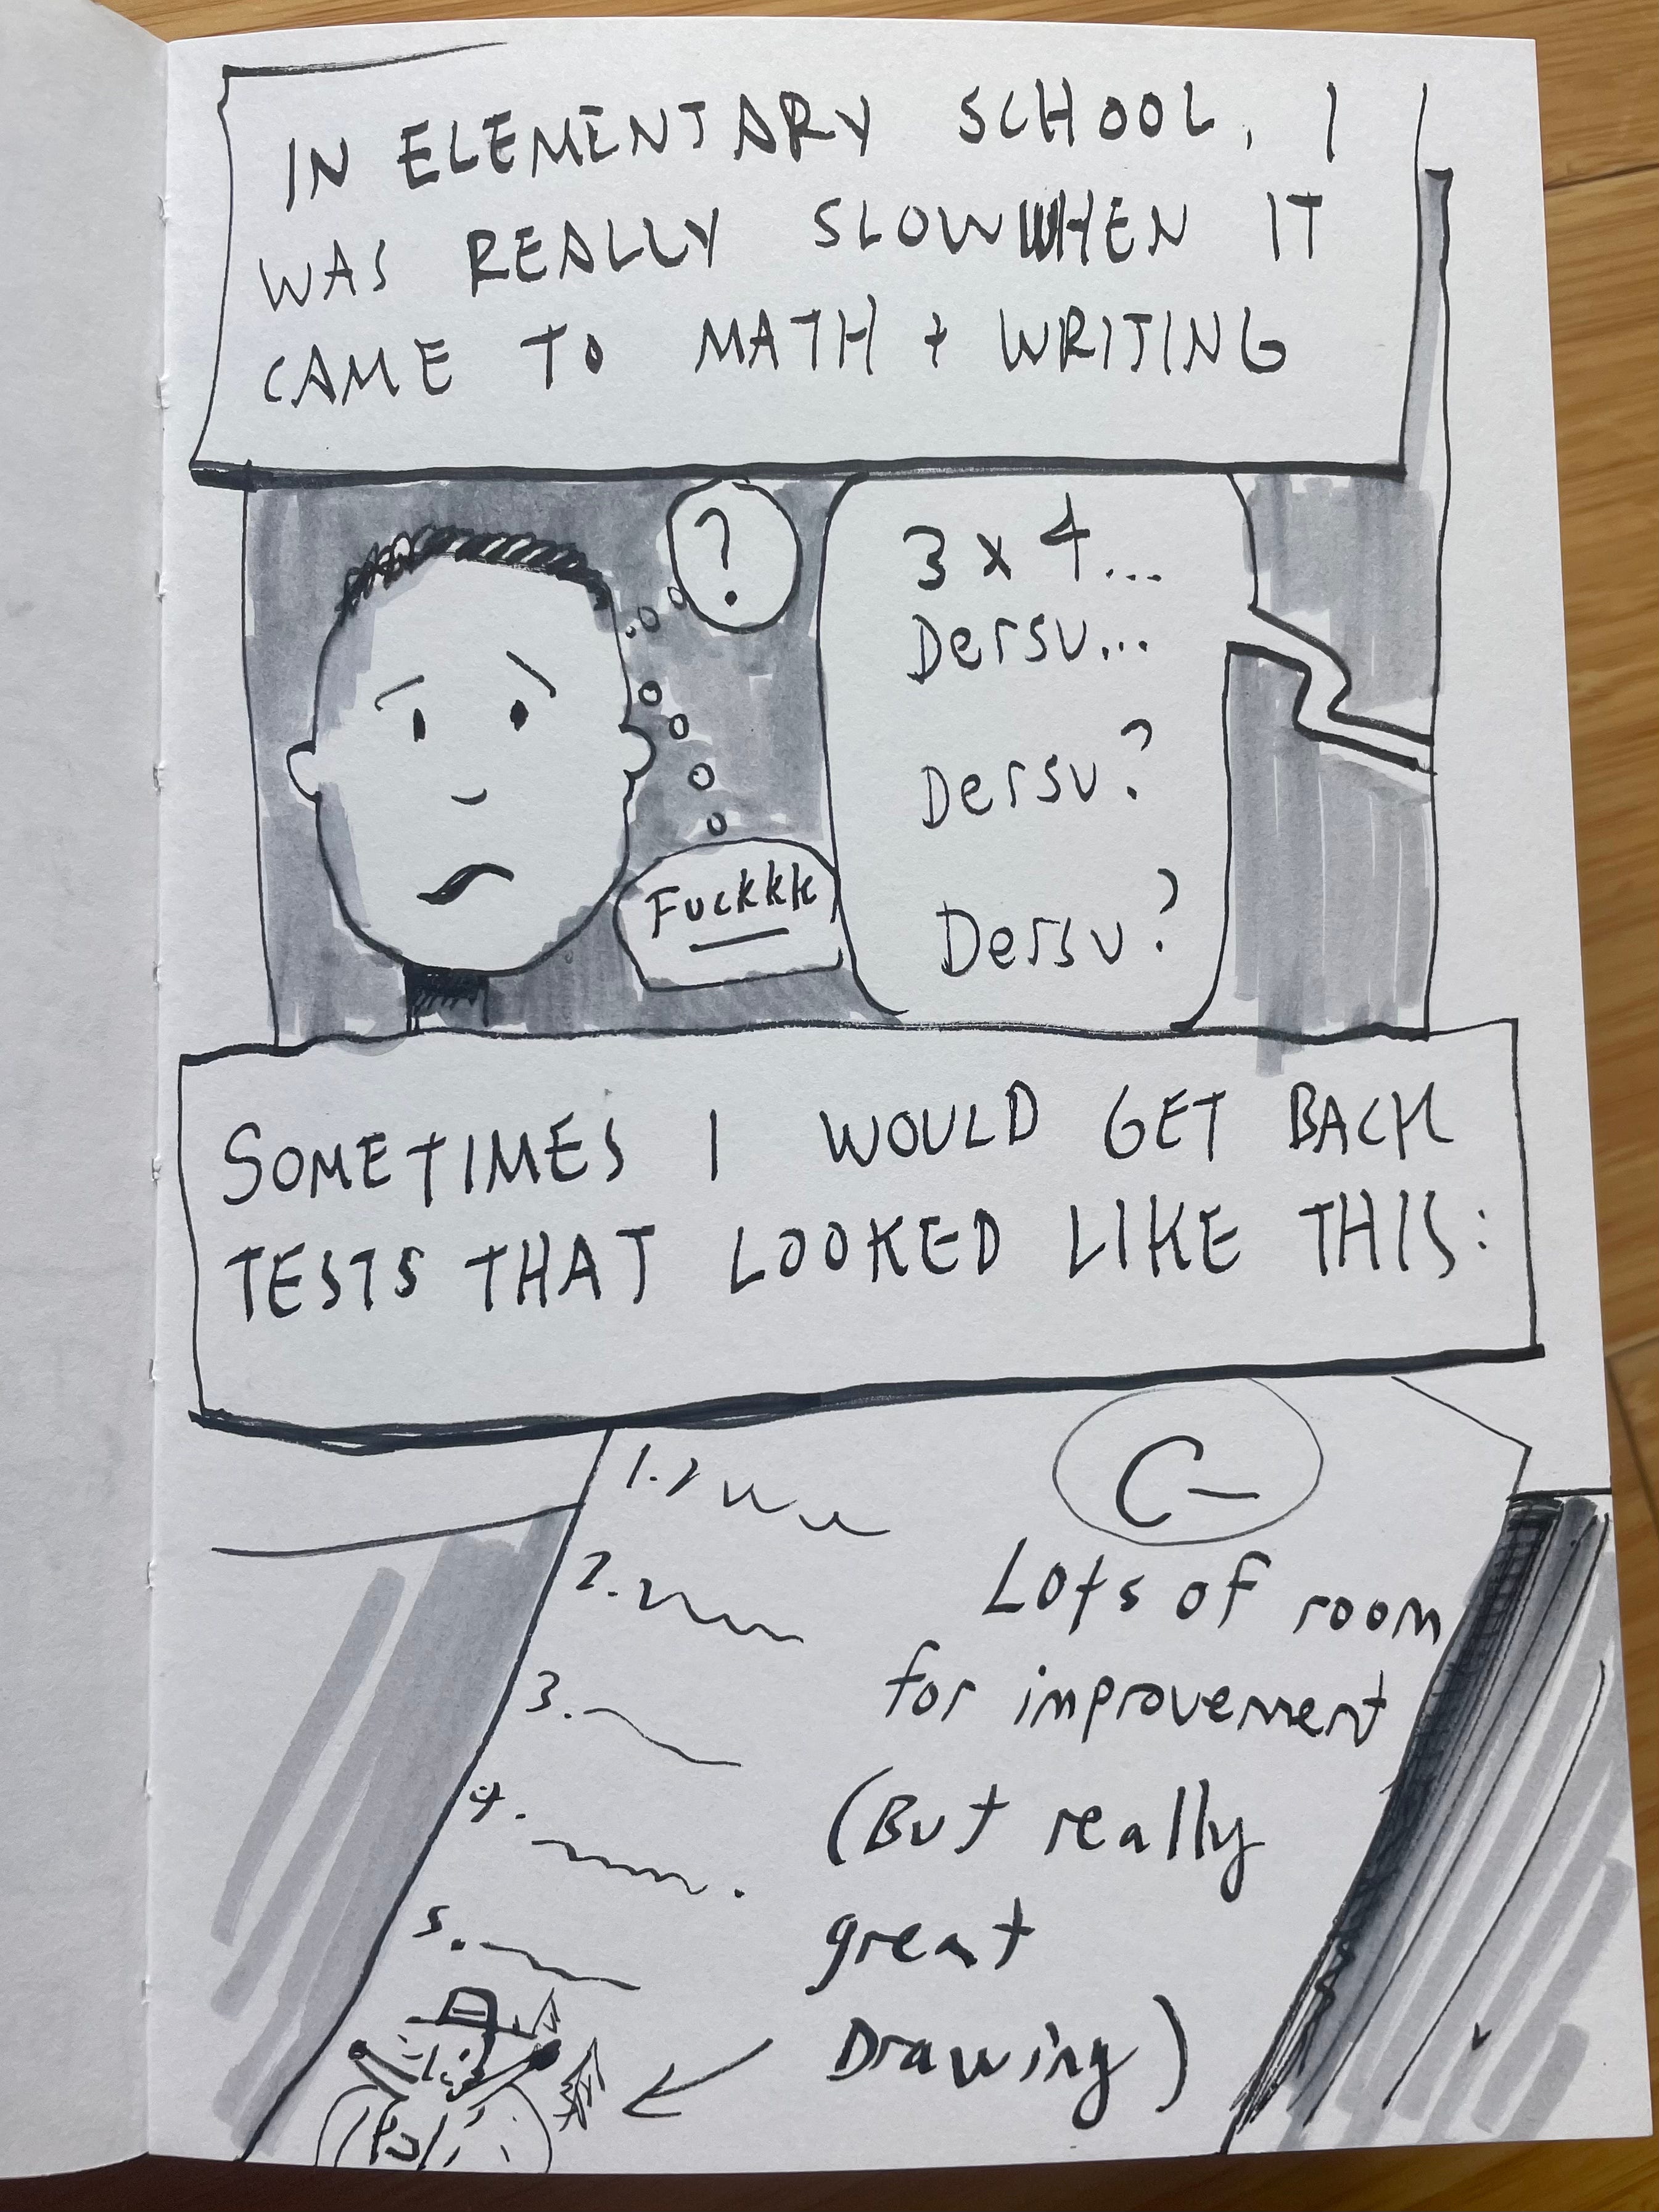 IN ELEMENTARY SCHOOL, I
WAS REALLY SLOW WHEN IT
CAME TO MATH + WRITING
?
3 x 4...
Dersu...
Dersu?
Fuckkk
Dersu?
SOMETIMES I WOULD GET BACK
TESTS THAT LOOKED LIKE THIS:
C-
1.
2.
3.
4.
5.
Lots of room
for improvement
(But really
great
Drawing)